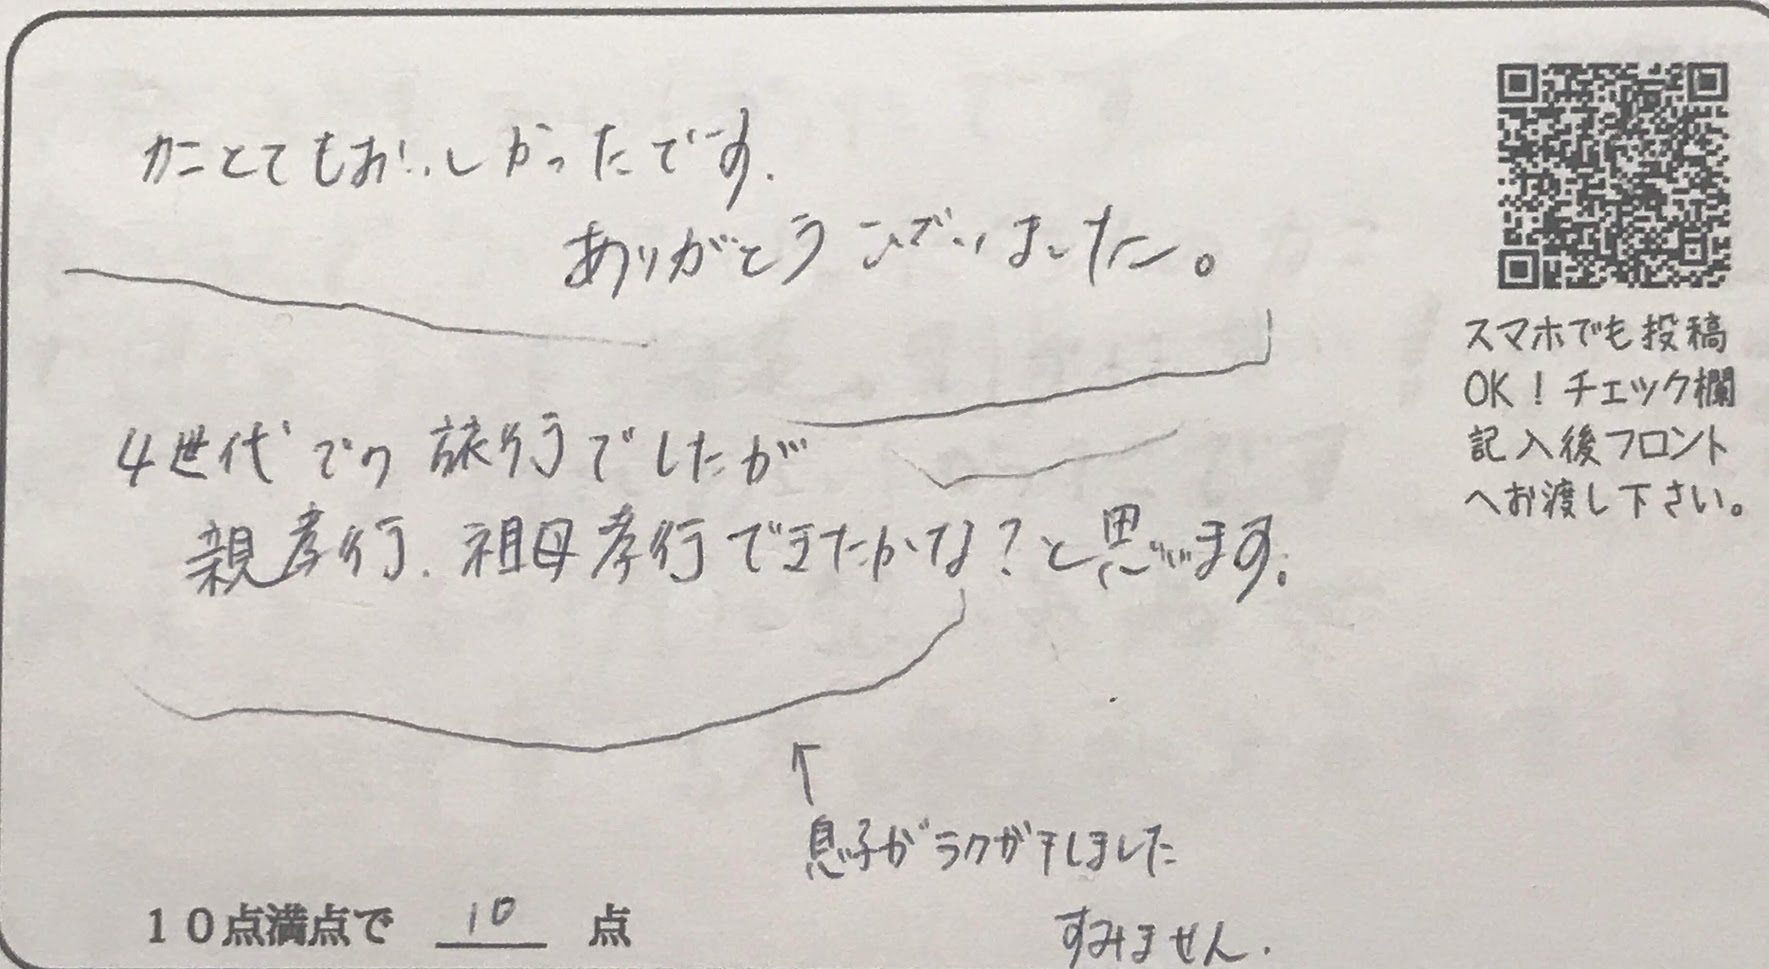 カニとてもおいしかったです.
ありがとうございました。
4世代での旅行でしたが
親孝行.祖母孝行できたかな?と思います.
↑
息子がラクガキしました
すみません.
10点満点で 10 点
スマホでも投稿
OK！チェック欄
記入後フロント
へお渡し下さい。